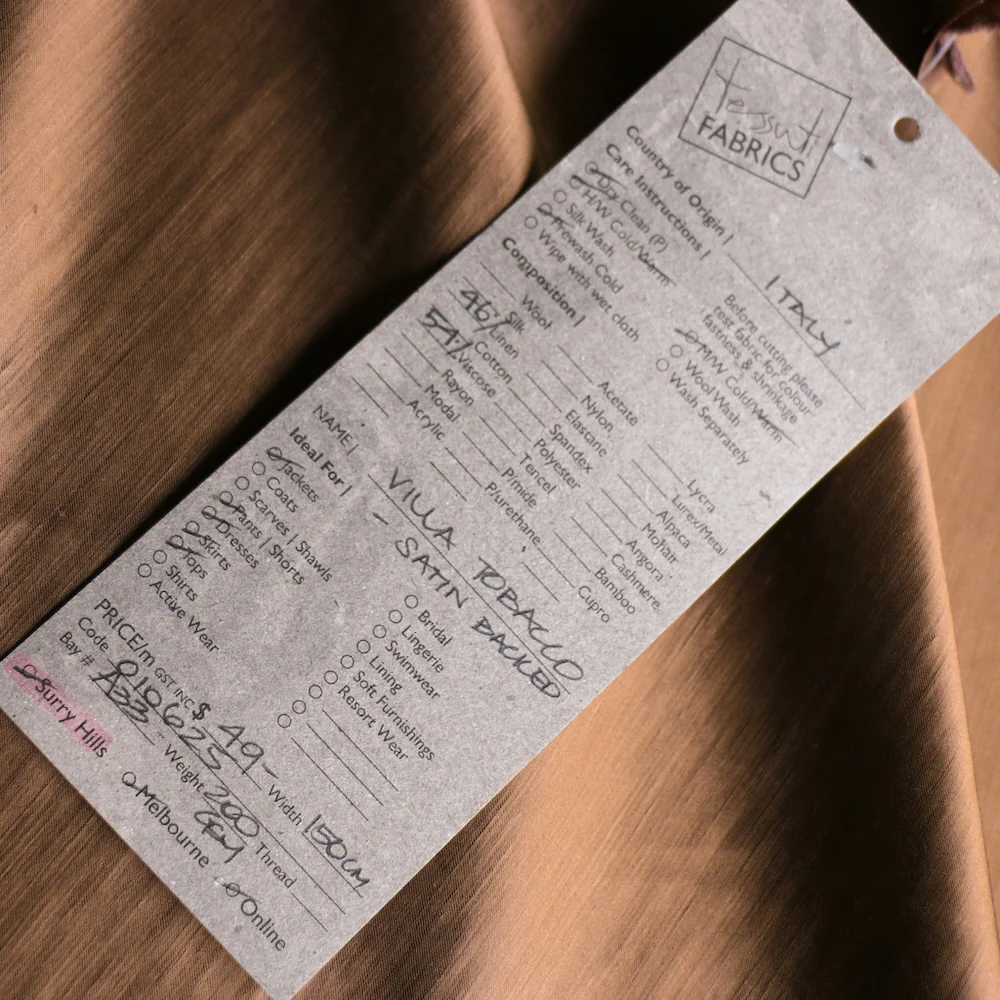 Tessuti
FABRICS
Country of Origin | ITALY
Care Instructions |
Dry Clean (P)
H/W Cold/Warm
Silk Wash
Prewash Cold
Wipe with wet cloth
Before cutting please
test fabric for colour
fastness & shrinkage
M/W Cold/Warm
Wool Wash
Wash Separately
Composition |
Wool
Silk
46% Linen
Cotton
54% Viscose
Rayon
Modal
Acrylic
Acetate
Nylon
Elastane
Spandex
Polyester
Tencel
P/mide
P/urethane
Lycra
Lurex/Metal
Alpaca
Mohair
Angora
Cashmere
Bamboo
Cupro
NAME | VILLA TOBACCO
- SATIN BACKED
Ideal For |
Jackets
Coats
Scarves | Shawls
Pants | Shorts
Dresses
Skirts
Tops
Shirts
Active Wear
Bridal
Lingerie
Swimwear
Lining
Soft Furnishings
Resort Wear
PRICE/m GST INC $ 49- Width 150CM
Code 010625 Weight 200 GSM Thread
Bay # A33
Surry Hills
Melbourne
Online